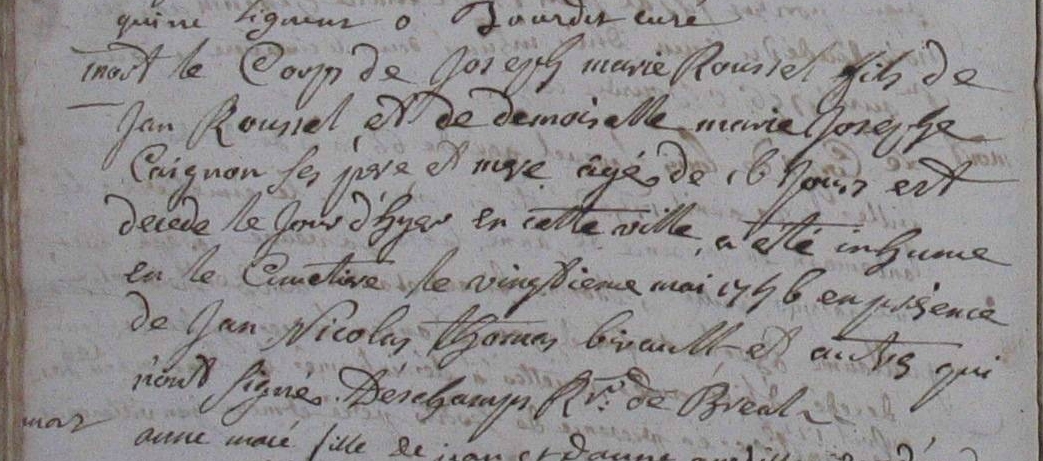 qui ne signent o Bourdet curé
mort le Corps de Joseph marie Roussel fils de
Jan Roussel et de demoiselle marie Josephe
Caignon ses pere et mere âgé de 16 Jours est
decede le Jour d'hyer en cette ville a eté inhume
en le Cimetiere le vingtieme mai 1756 en présence
de Jan Nicolas thomas birault et autres qui
n'ont signe. Deschamps Rr. de Breal
mort
anne marie fille de jan et d'anne